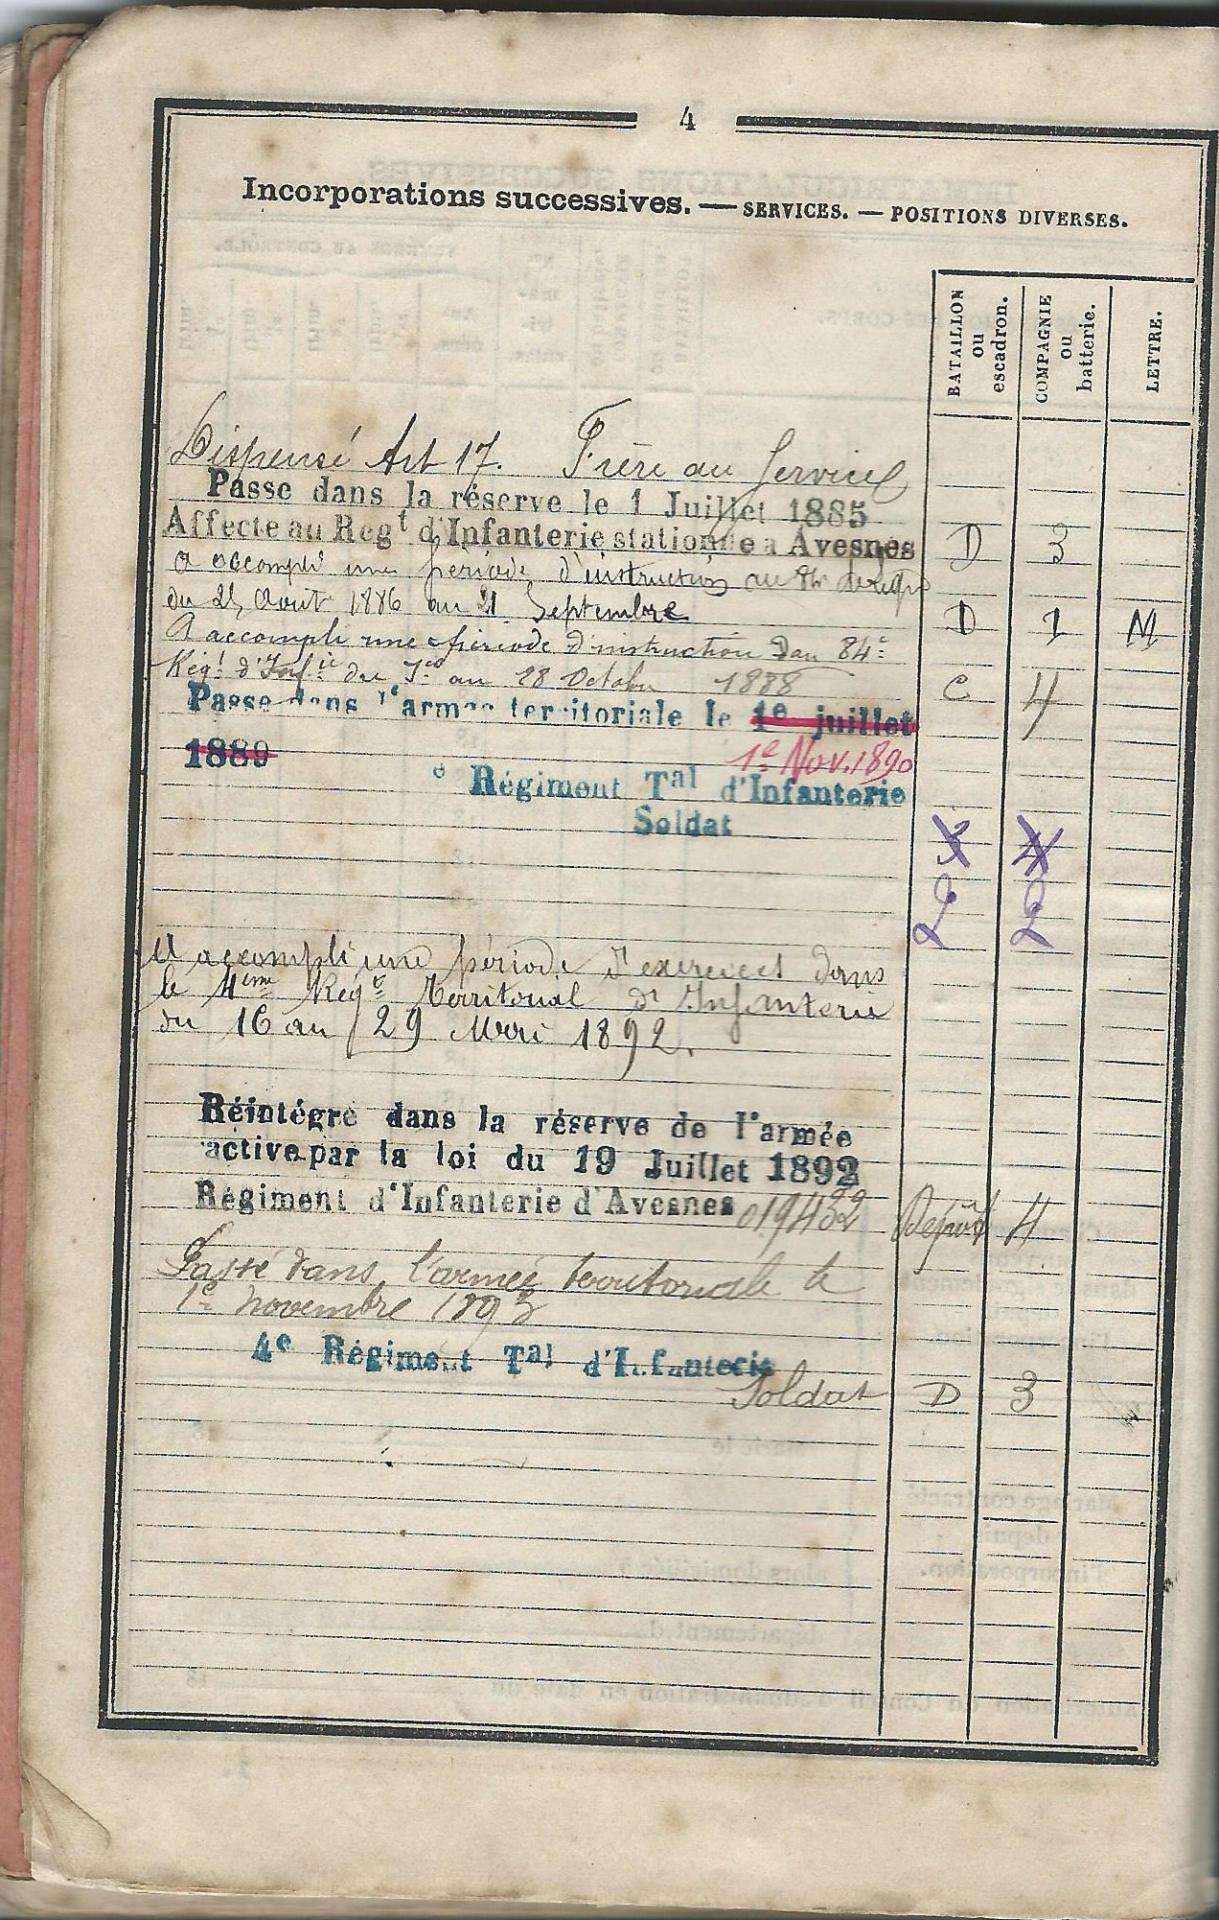 4
Incorporations successives. — SERVICES. — POSITIONS DIVERSES.
BATAILLON ou escadron.
COMPAGNIE ou batterie.
LETTRE.
Dispensé Art 17. Frère au Service
Passe dans la réserve le 1 Juillet 1885
Affecte au Regt d'Infanterie stationne a Avesnes D 3
a accompli une période d'instruction au 84e
du 25 Aout 1886 au 21 Septembre D 1 M
A accompli une période d'instruction dau 84e
Régt d'Infie du 1er au 28 Octobre 1888 C 4
Passe dans l'armée territoriale le 1e juillet
1889 1e Nov. 1890
e Régiment Tal d'Infanterie
Soldat
4
2 2
A accompli une période d'exercices dans
le 4eme Regt Territorial d'Infanterie
du 16 au 29 Mai 1892.
Réintégré dans la réserve de l'armée
active par la loi du 19 Juillet 1892
Régiment d'Infanterie d'Avesnes 019432 Dépôt 4
Passé dans l'armée territoriale le
1er novembre 1893
4e Régiment Tal d'Infanterie
Soldat D 3